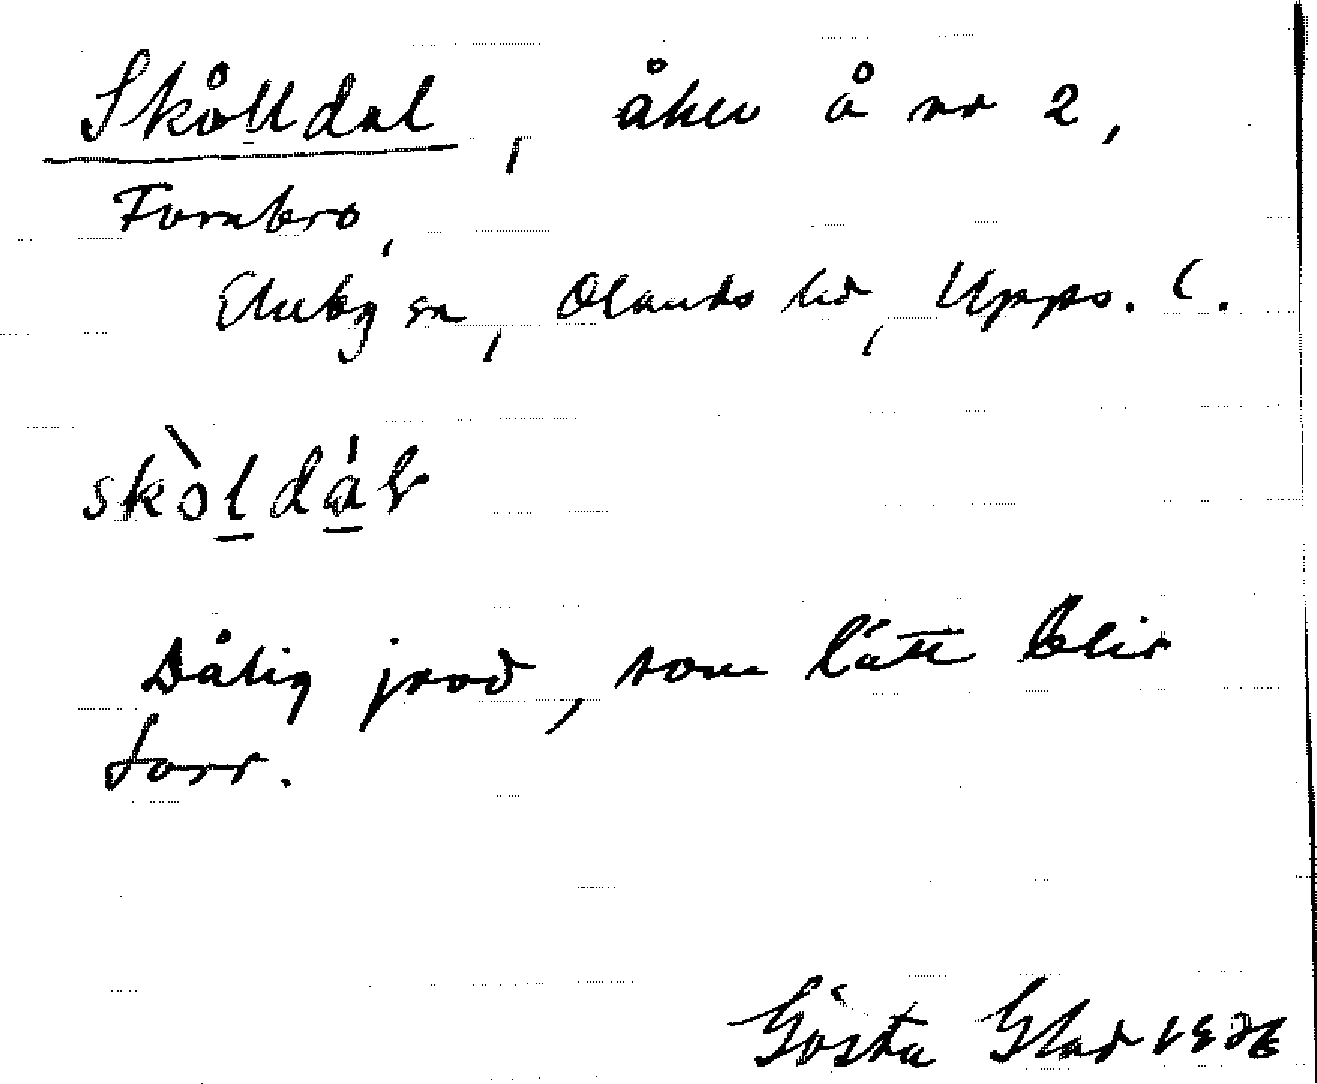 Skålldal, åker å nr 2,
Fornbro,
Ekeby sn, Olands hd, Upps. l.
skòldál
Dålig jord, som lätt blir
torr.
Gösta Glad